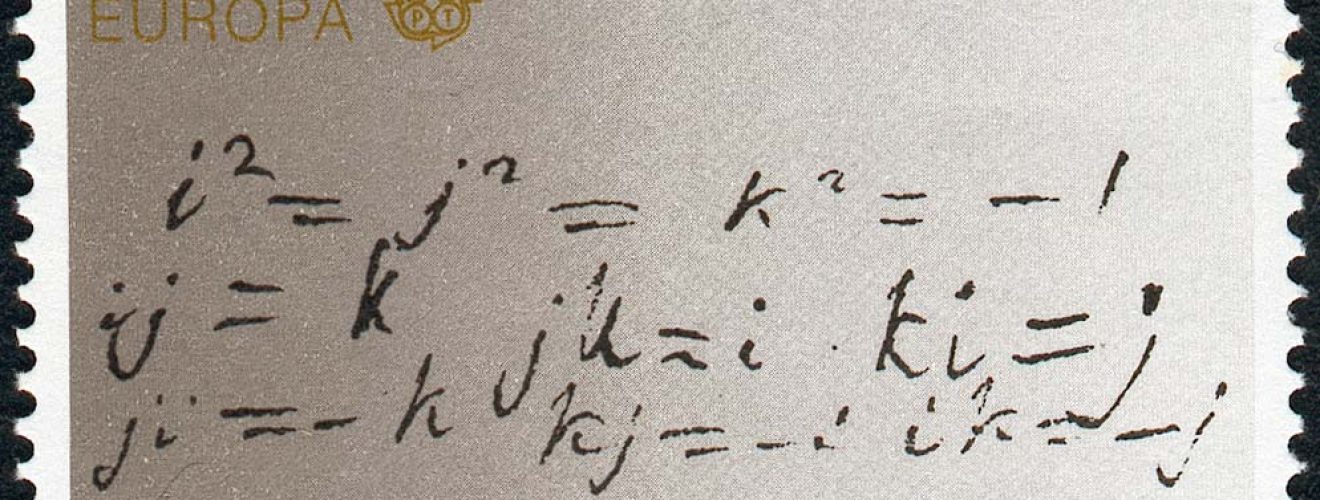 EUROPA PT
i² = j² = k² = -1
ij = k jk = i ki = j
ji = -k kj = -i ik = -j